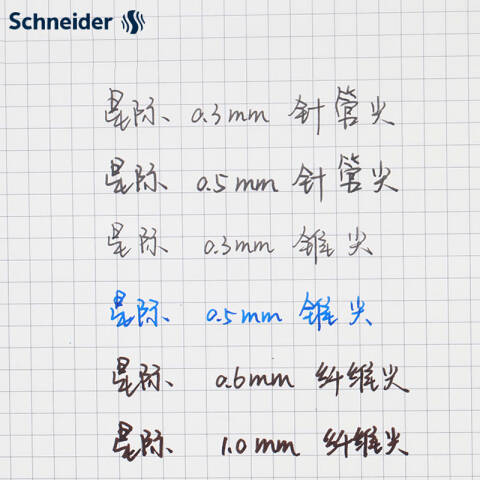 Schneider
星际 0.3mm 针管尖
星际 0.5mm 针管尖
星际 0.3mm 锥尖
星际 0.5mm 锥尖
星际 0.6mm 纤维尖
星际 1.0mm 纤维尖